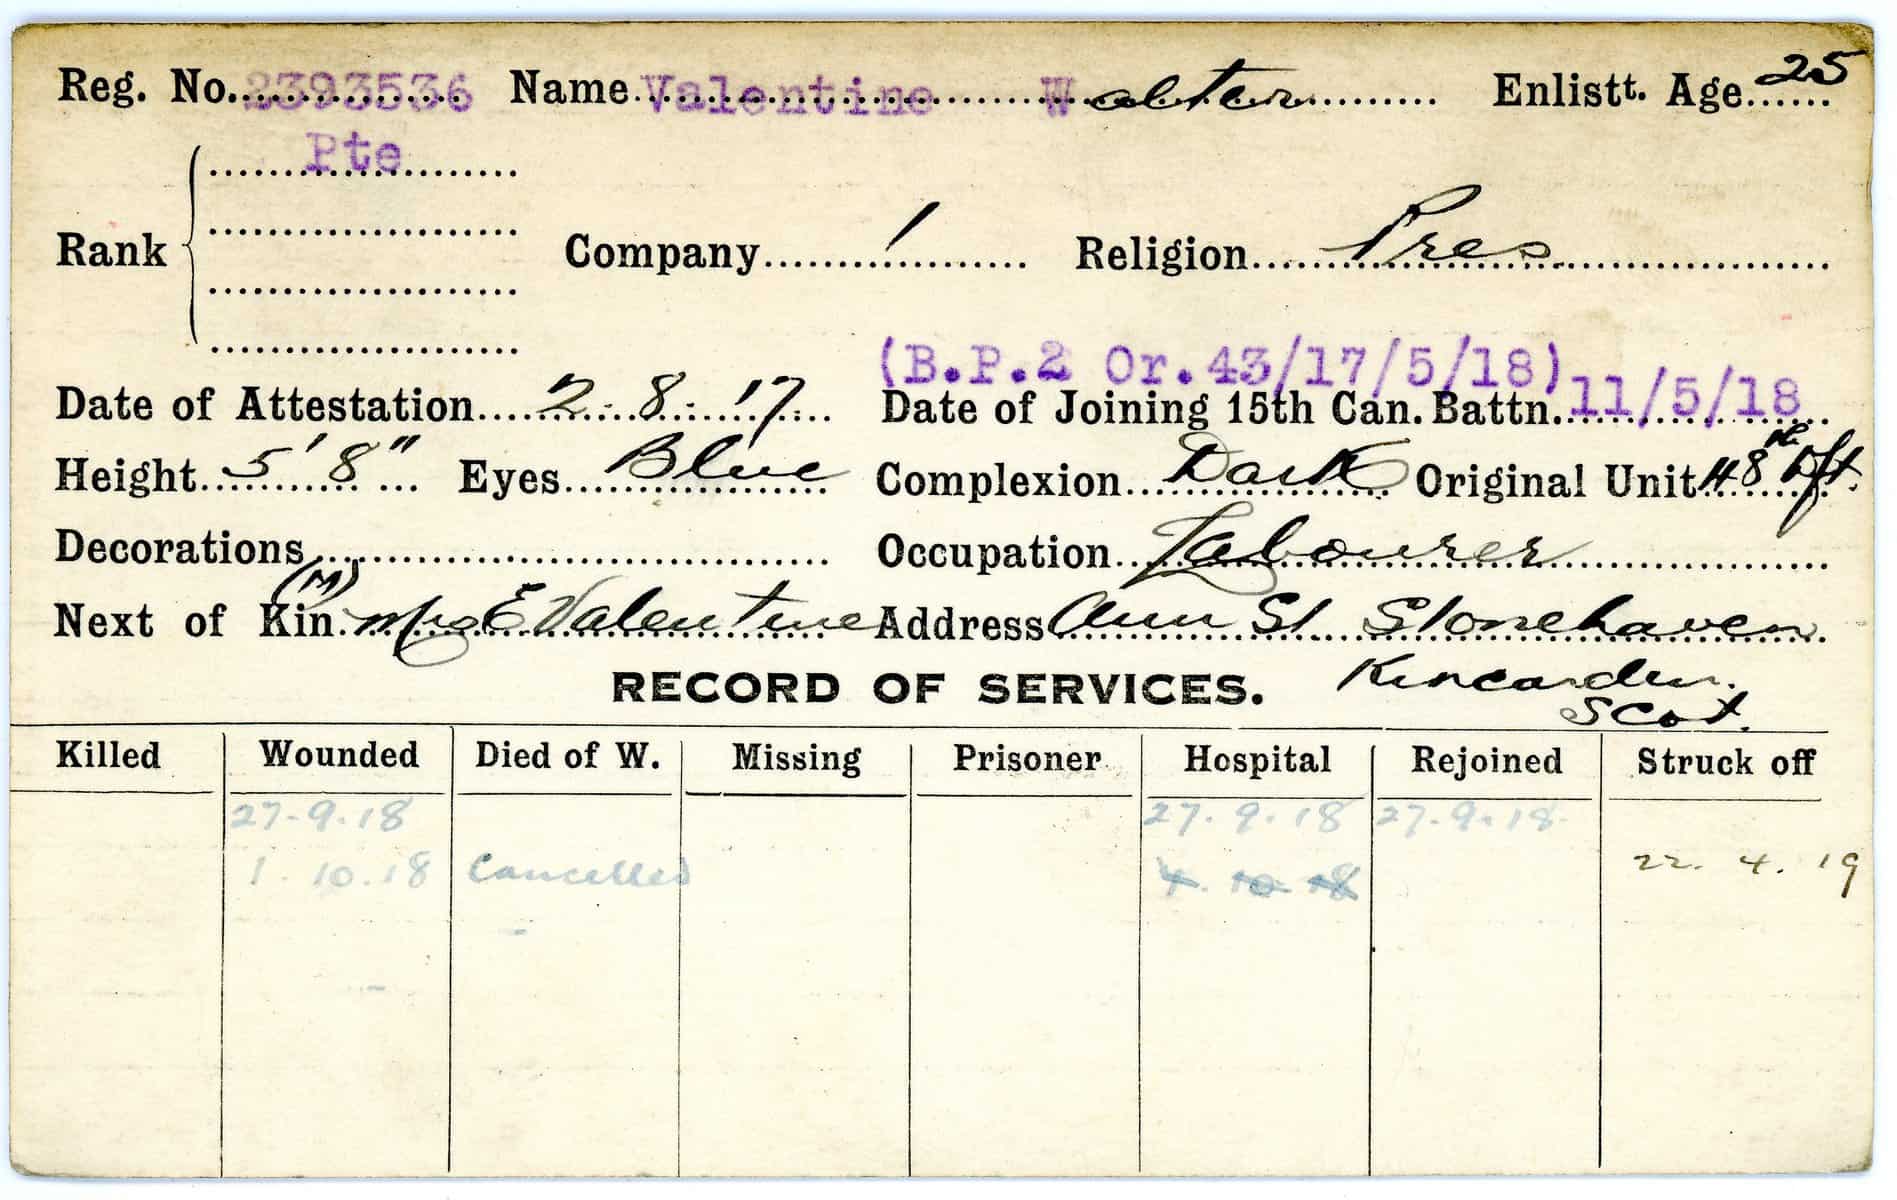 Reg. No. 2393536 Name Valentine Walter Enlistt. Age 25
Pte
Rank Company 1 Religion Pres
(B.P.2 Or.43/17/5/18)
Date of Attestation 2-8-17 Date of Joining 15th Can. Battn. 11/5/18
Height 5'8" Eyes Blue Complexion Dark Original Unit 48th Dft.
Decorations Occupation Labourer
(M)
Next of Kin Mrs E Valentine Address Ann St Stonehaven
RECORD OF SERVICES. Kincarden.
Scot.
Killed Wounded Died of W. Missing Prisoner Hospital Rejoined Struck off
27-9-18 27.9.18 27.9.18
1.10.18 Cancelled 4.10.18 22.4.19